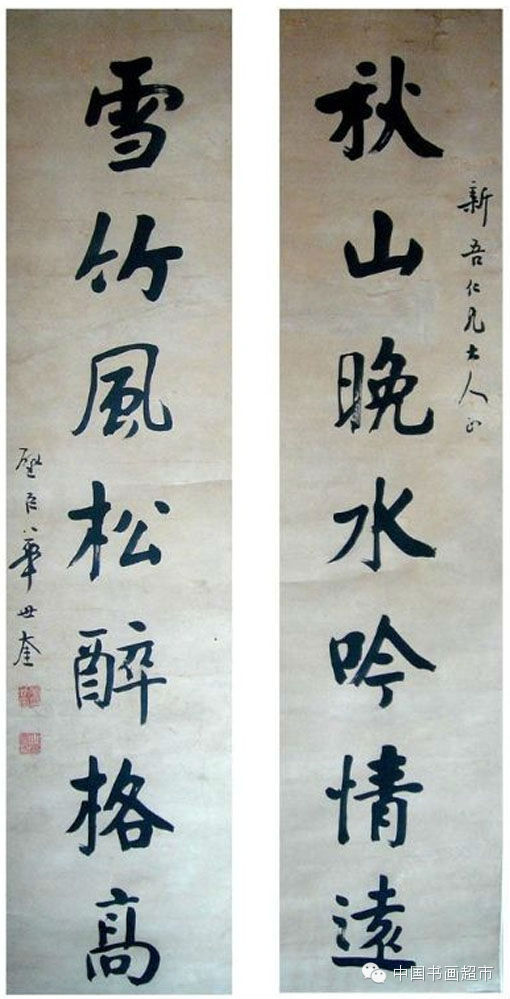 新吾仁兄大人正
秋山晚水吟情遠
雪竹風松醉格高
璧臣華世奎
中国书画超市